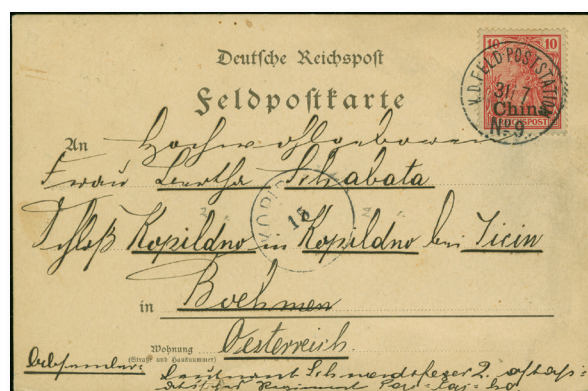 Deutsche Reichspost
Feldpostkarte
10 10
K.D. FELD-POSTSTATION
31/7
China
REICHSPOST
No 9.
An Hochwohlgeboren
Frau Bertha Schabata
15
Schloß Kopildno in Kopildno bei Jicin
in Boehmen
Wohnung
(Straße und Hausnummer)
Oesterreich.
Absender:
Leutnant 2. ostasi-
atischer Regiment